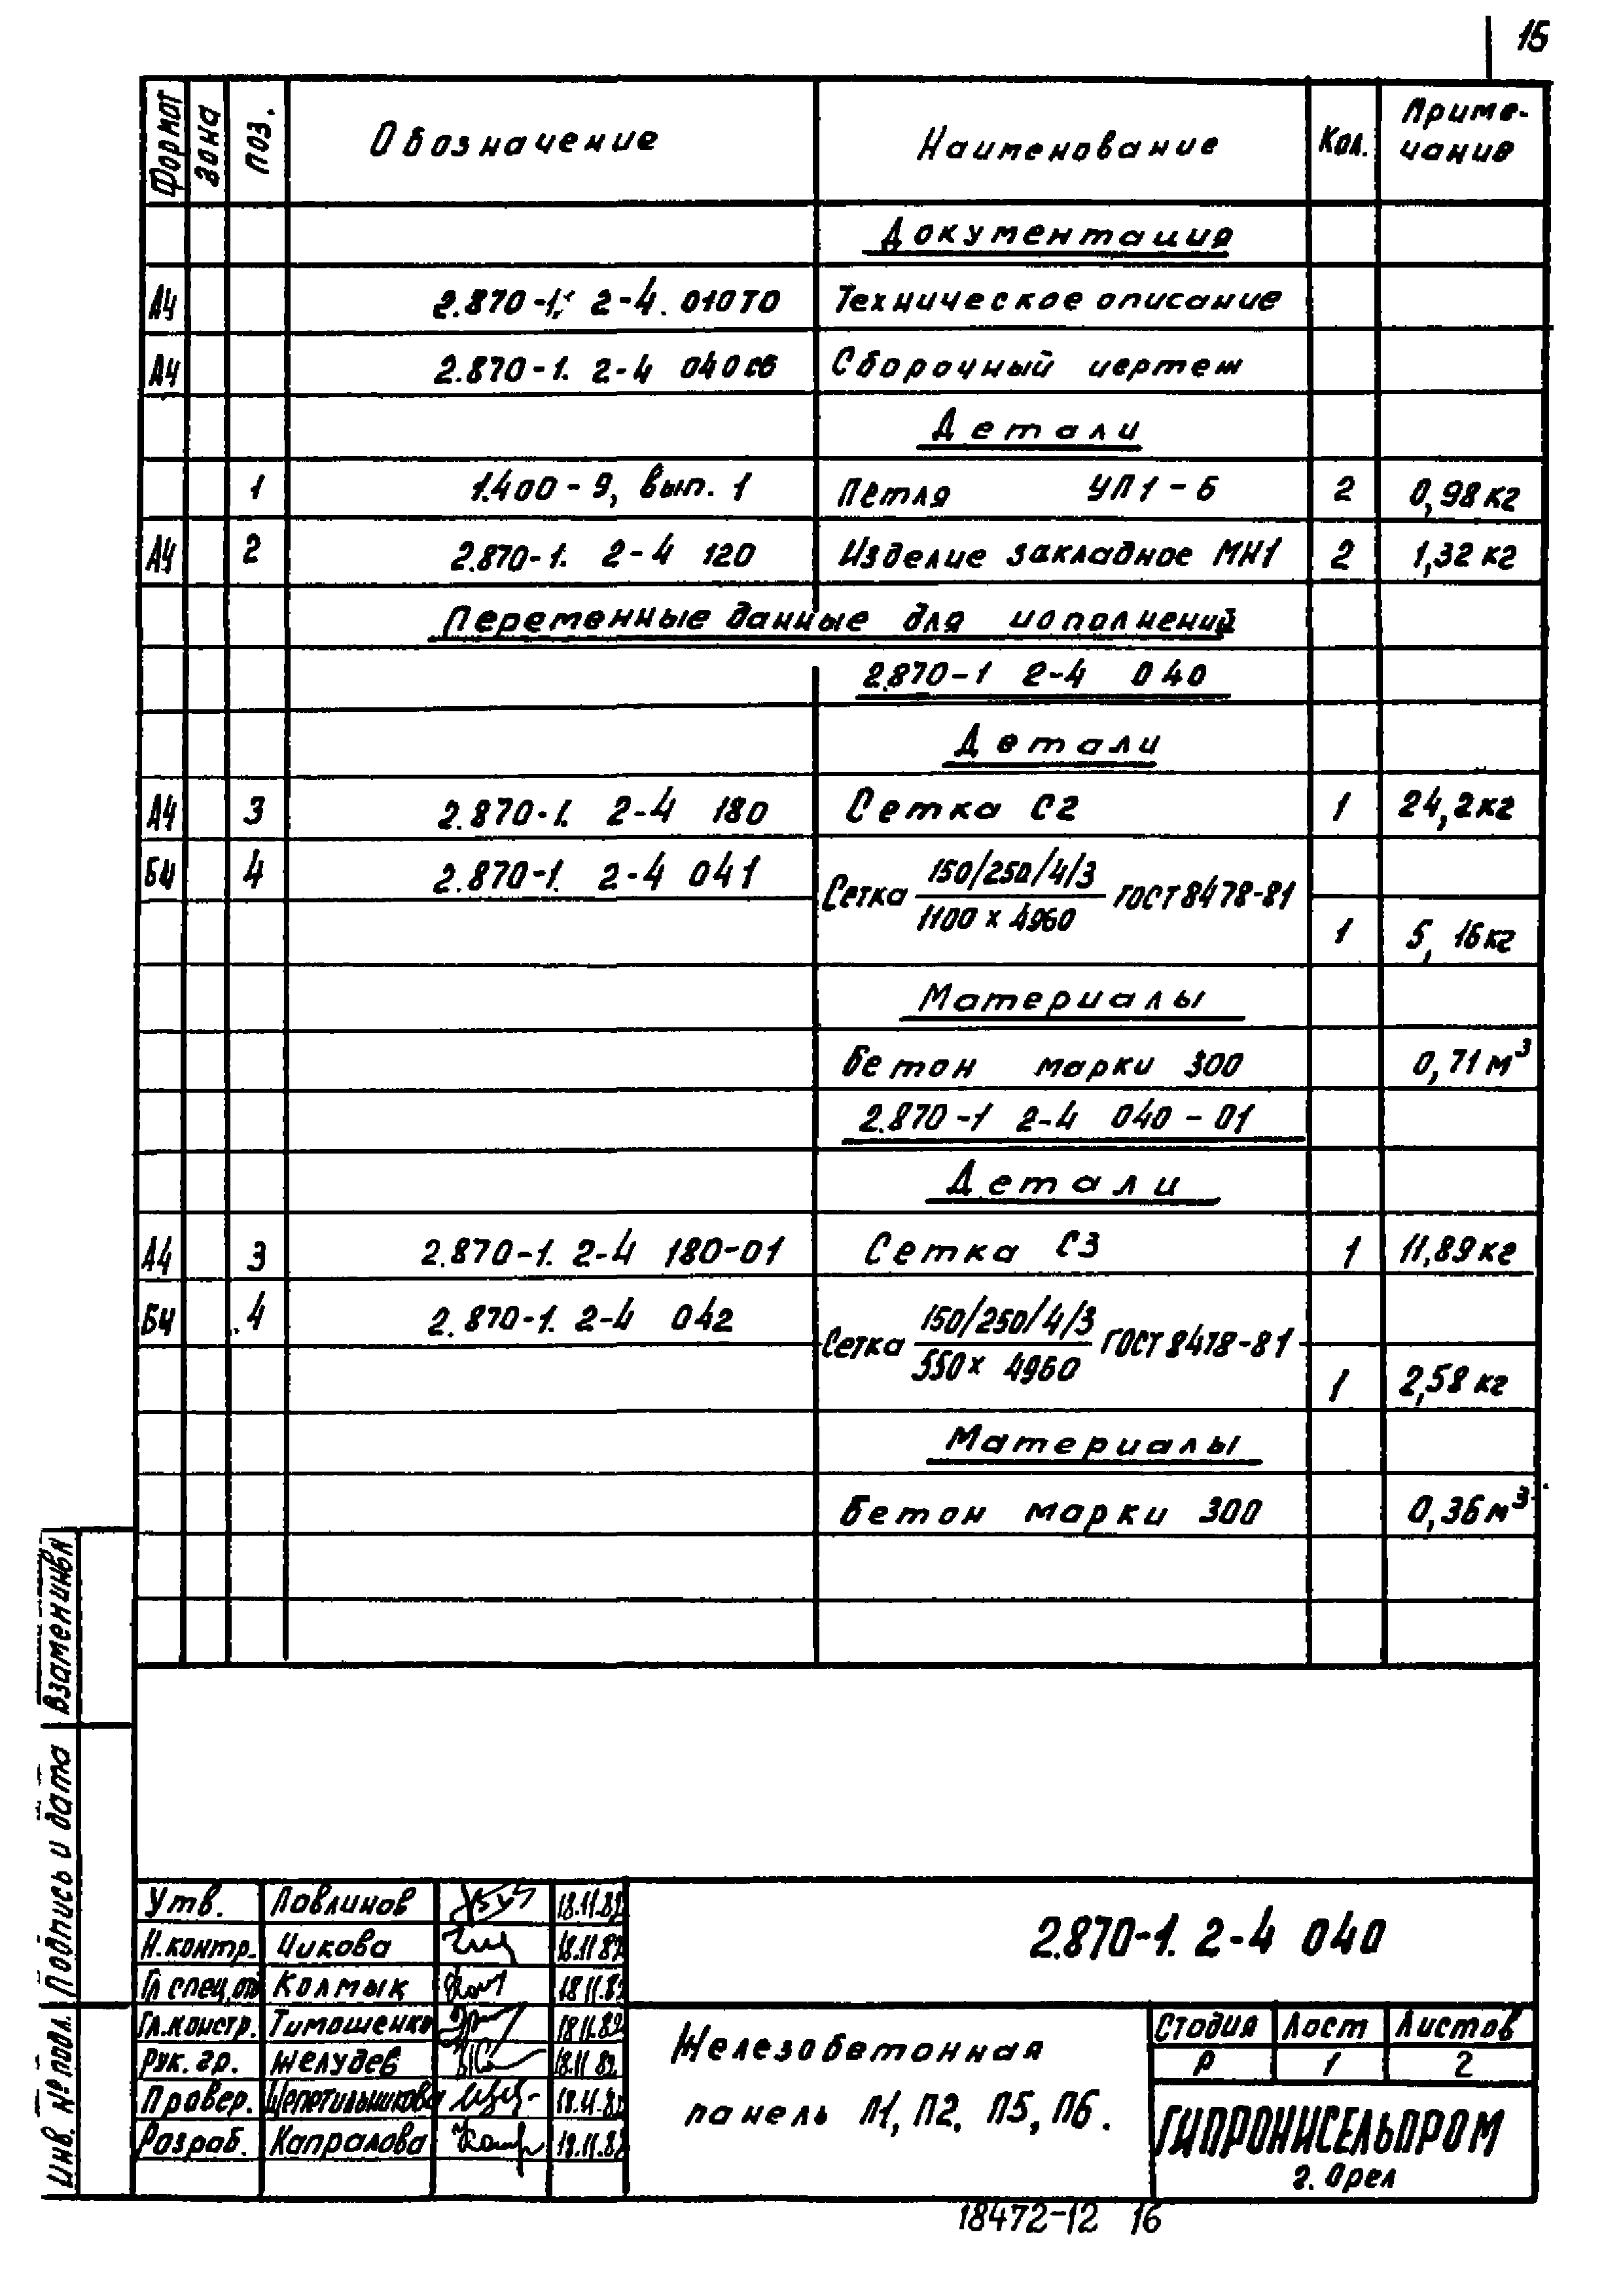 15
Формат Зона Поз. Обозначение Наименование Кол. Приме-
чание
Документация
А4 2.870-1. 2-4. 010ТО Техническое описание
А4 2.870-1. 2-4 040СБ Сборочный чертеж
Детали
1 1.400-9, вып. 1 Петля УП1-5 2 0,98 кг
А4 2 2.870-1. 2-4 120 Изделие закладное МН1 2 1,32 кг
Переменные данные для исполнений
2.870-1 2-4 040
Детали
А4 3 2.870-1. 2-4 180 Сетка С2 1 24,2 кг
БЧ 4 2.870-1. 2-4 041 Сетка 150/250/4/3 ГОСТ 8478-81
1100 x 4960 1 5,16 кг
Материалы
Бетон марки 300 0,71 м³
2.870-1 2-4 040-01
Детали
А4 3 2.870-1. 2-4 180-01 Сетка С3 1 11,89 кг
БЧ 4 2.870-1. 2-4 042 Сетка 150/250/4/3 ГОСТ 8478-81
550 x 4960 1 2,58 кг
Материалы
Бетон марки 300 0,36 м³
Взамен инв №
Подпись и дата
Инв. № подл.
Утв. Павлинов 18.11.82
Н.контр. Чикова 18.11 82
Гл спец.от Колмык 18 11.82
Гл.констр. Тимошенко 18 11.82
Рук. гр. Желудев 18.11 82
Провер. Щепетильникова 18.11.82
Разраб. Капралова 18.11.82
2.870-1. 2-4 040
Железобетонная
панель П1, П2, П5, П6.
Стадия Лист Листов
Р 1 2
ГИПРОНИСЕЛЬПРОМ
г. Орел
18472-12 16